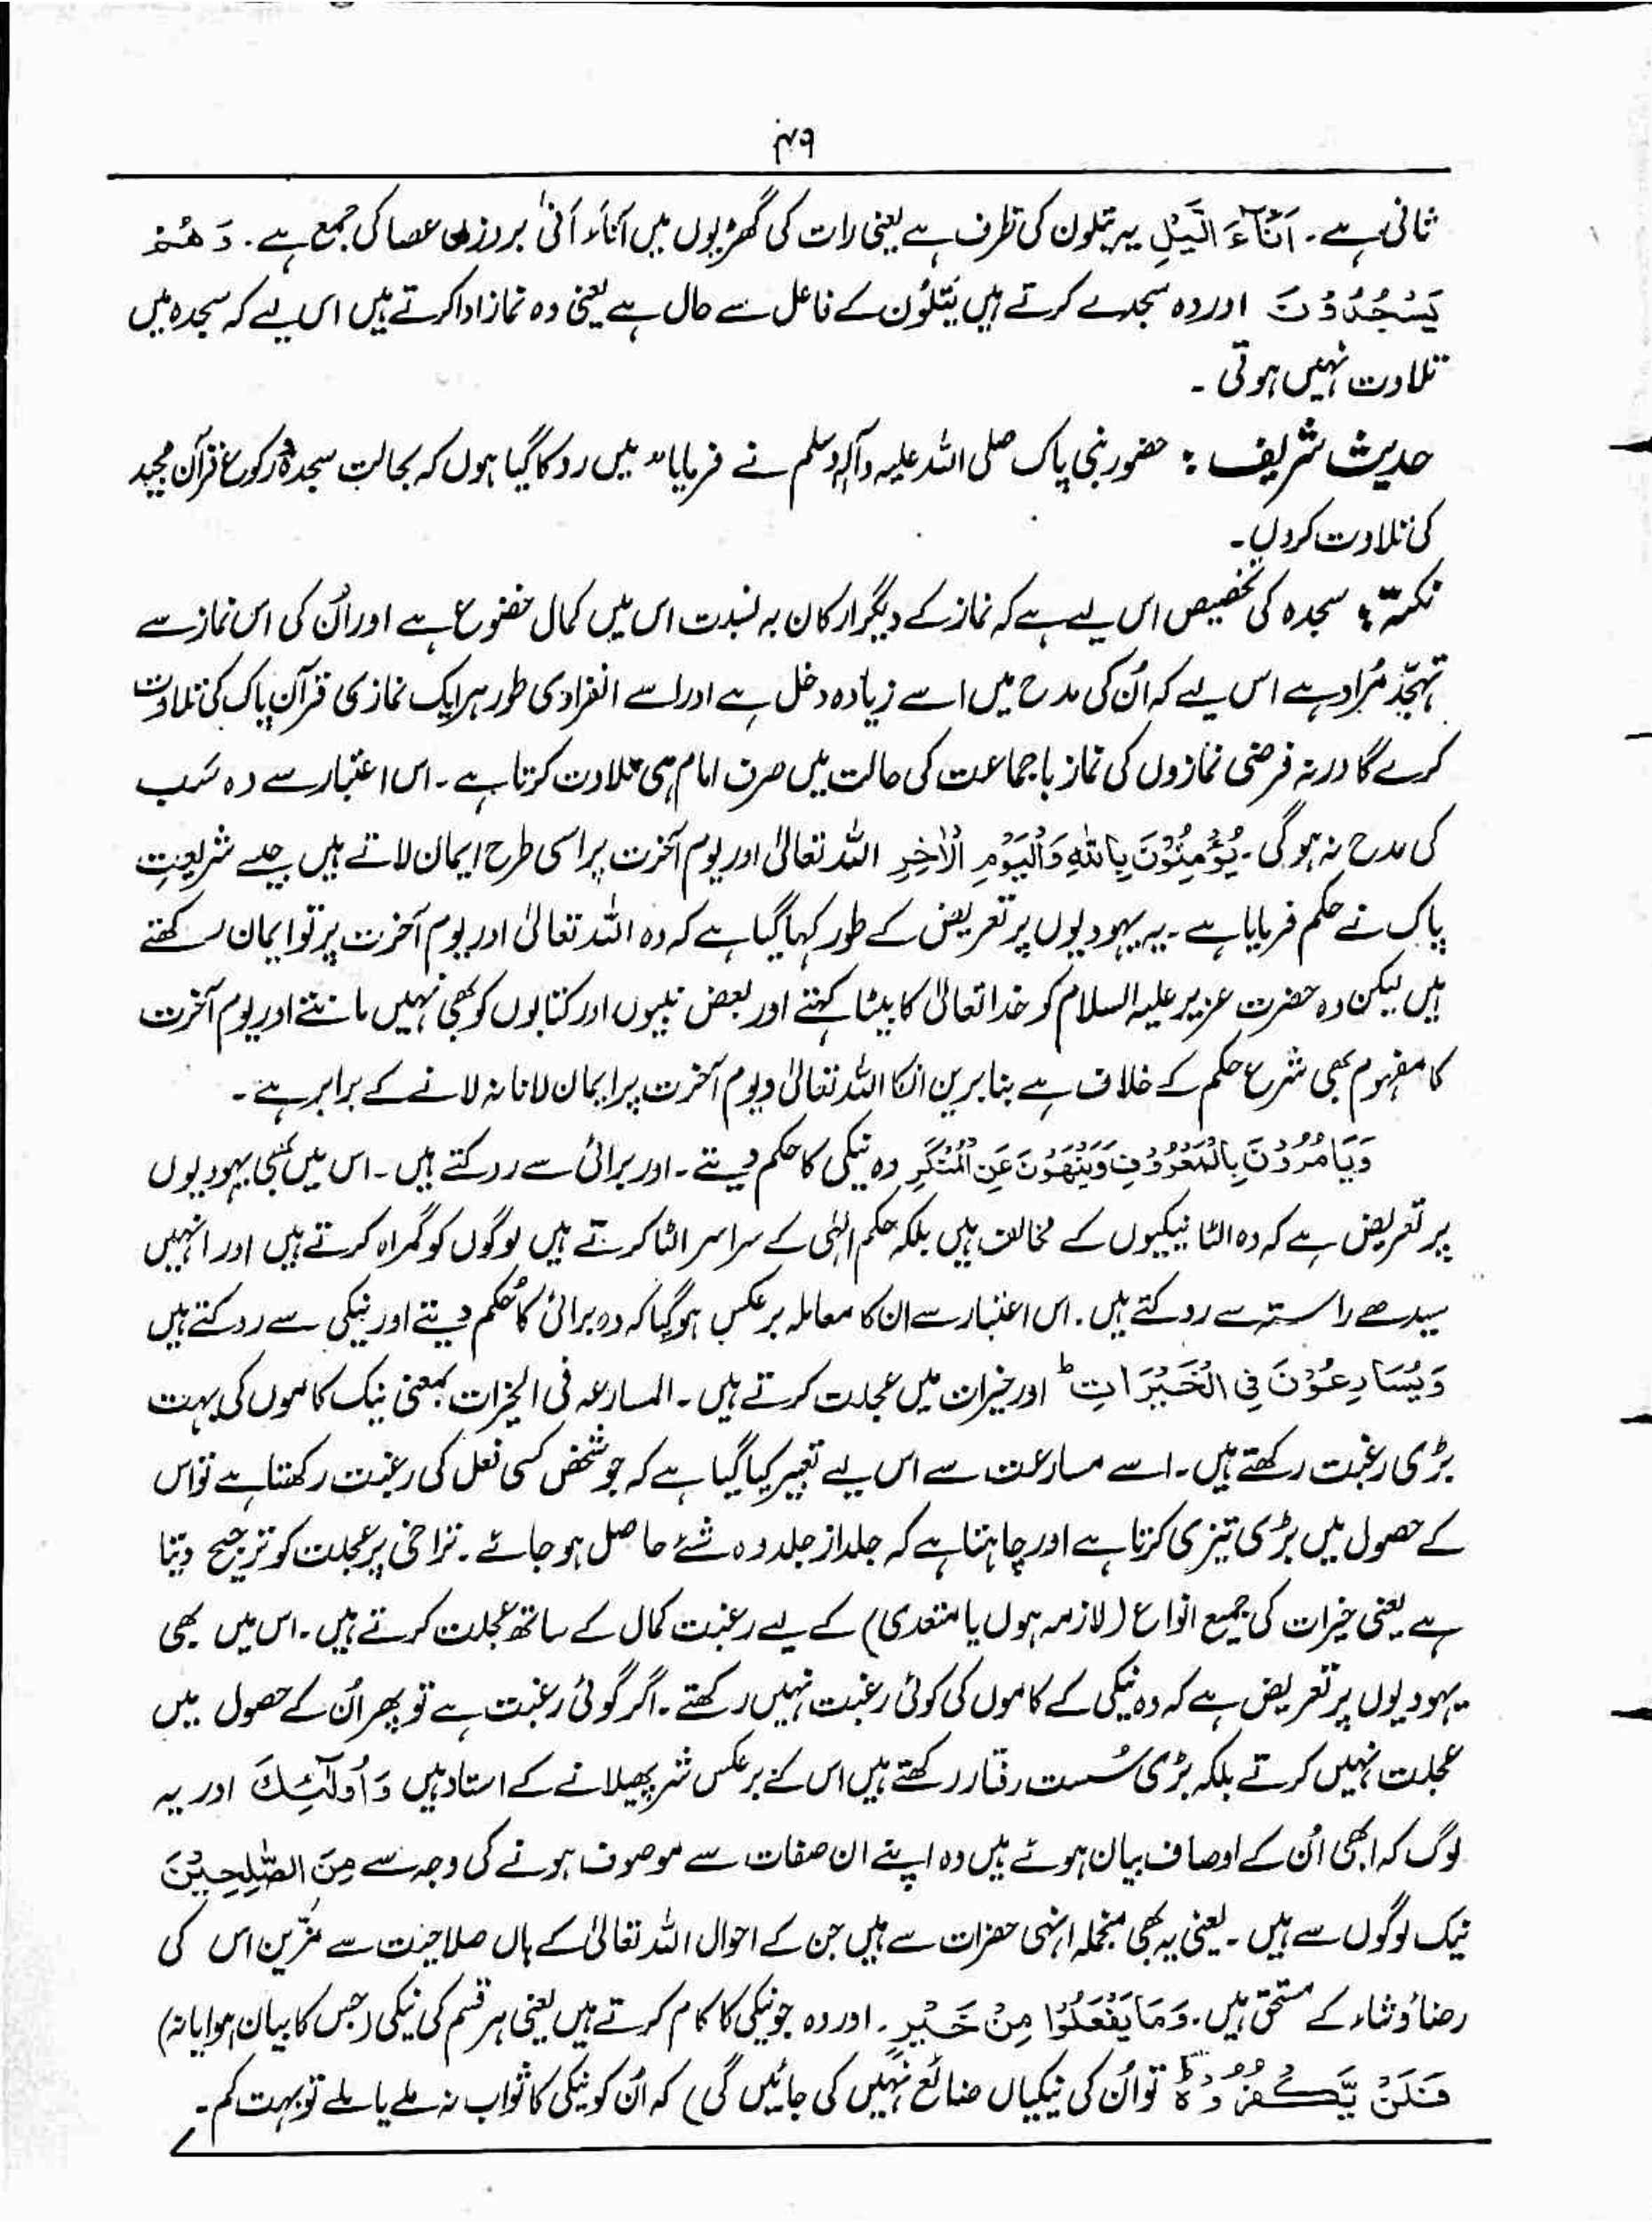 ۴۹
ثانی ہے۔ اٰنَآءَ الَّیْلِ یہ یتلون کی ظرف ہے یعنی رات کی گھڑیوں میں آناءَ اَنیٰ بروزن عصا کی جمع ہے۔ وَ هُمْ
یَسْجُدُوْنَ اور وہ سجدے کرتے ہیں یَتْلُوْن کے فاعل سے حال ہے یعنی وہ نماز ادا کرتے ہیں اس لیے کہ سجدہ میں
تلاوت نہیں ہوتی ۔
حدیث شریف : حضور نبی پاک صلی اللہ علیہ وآلہٖ وسلم نے فرمایا " میں روکا گیا ہوں کہ بحالت سجدہ و رکوع قرآن مجید
کی تلاوت کروں۔
نکتہ : سجدہ کی تخصیص اس لیے ہے کہ نماز کے دیگر ارکان بہ نسبت اس میں کمال خضوع ہے اور اُن کی اس نماز سے
تہجّد مُراد ہے اس لیے کہ اُن کی مدح میں اسے زیادہ دخل ہے اور اسے انفرادی طور ہر ایک نمازی قرآن پاک کی تلاوت
کرے گا ورنہ فرضی نمازوں کی نماز باجماعت کی حالت میں صرف امام ہی تلاوت کرتا ہے۔ اس اعتبار سے وہ سَب
کی مدح نہ ہوگی۔ یُؤْمِنُوْنَ بِاللّٰهِ وَالْیَوْمِ الْاٰخِرِ اللہ تعالیٰ اور یوم آخرت پر اسی طرح ایمان لاتے ہیں جیسے شریعتِ
پاک نے حکم فرمایا ہے۔ یہ یہودیوں پر تعریض کے طور کہا گیا ہے کہ وہ اللہ تعالیٰ اور یوم آخرت پر تو ایمان رکھتے
ہیں لیکن وہ حضرت عزیر علیہ السلام کو خدا تعالیٰ کا بیٹا کہتے اور بعض نبیوں اور کتابوں کو بھی نہیں مانتے اور یوم آخرت
کا مفہوم بھی شرع حکم کے خلاف ہے بنابرین انکا اللہ تعالیٰ ویوم آخرت پر ایمان لانا نہ لانے کے برابر ہے۔
وَیَاْمُرُوْنَ بِالْمَعْرُوْفِ وَیَنْهَوْنَ عَنِ الْمُنْكَرِ وہ نیکی کا حکم دیتے۔ اور برائی سے روکتے ہیں۔ اس میں بھی یہودیوں
پر تعریض ہے کہ وہ الٹا نیکیوں کے مخالف ہیں بلکہ حکم الٰہی کے سراسر الٹا کرتے ہیں لوگوں کو گمراہ کرتے ہیں اور انہیں
سیدھے راستہ سے روکتے ہیں۔ اس اعتبار سے ان کا معاملہ برعکس ہوگیا کہ وہ برائی کا حُکم دیتے اور نیکی سے روکتے ہیں
وَیُسَارِعُوْنَ فِی الْخَیْرَاتِ ط اور خیرات میں عجلت کرتے ہیں۔ المسارعہ فی الخیرات بمعنی نیک کاموں کی بہت
بڑی رغبت رکھتے ہیں۔ اسے مسارعت سے اس لیے تعبیر کیا گیا ہے کہ جو شخص کسی فعل کی رغبت رکھتا ہے تو اس
کے حصول میں بڑی تیزی کرتا ہے اور چاہتا ہے کہ جلد از جلد وہ شئے حاصل ہو جائے۔ تراخی پر عجلت کو ترجیح دیتا
ہے یعنی خیرات کی جمیع انواع (لازمہ ہوں یا متعدی) کے لیے رغبت کمال کے ساتھ عجلت کرتے ہیں۔ اس میں بھی
یہودیوں پر تعریض ہے کہ وہ نیکی کے کاموں کی کوئی رغبت نہیں رکھتے۔ اگر کوئی رغبت ہے تو پھر اُن کے حصول میں
عجلت نہیں کرتے بلکہ بڑی سُست رفتار رکھتے ہیں اس کے برعکس شر پھیلانے کے استاد ہیں وَاُولٰٓئِكَ اور یہ
لوگ کہ ابھی اُن کے اوصاف بیان ہوئے ہیں وہ اپنے ان صفات سے موصوف ہونے کی وجہ سے مِنَ الصّٰلِحِیْنَ
نیک لوگوں سے ہیں۔ یعنی یہ بھی منجملہ انہی حضرات سے ہیں جن کے احوال اللہ تعالیٰ کے ہاں صلاحیت سے مزّین اس کی
رضا وثناء کے مستحق ہیں۔ وَمَا یَفْعَلُوْا مِنْ خَیْرٍ۔ اور وہ جو نیکی کا کام کرتے ہیں یعنی ہر قسم کی نیکی (جس کا بیان ہوا یا نہ)
فَلَنْ یُّكْفَرُوْهُ ط تو اُن کی نیکیاں ضائع نہیں کی جائیں گی) کہ اُن کو نیکی کا ثواب نہ ملے یا ملے تو بہت کم۔